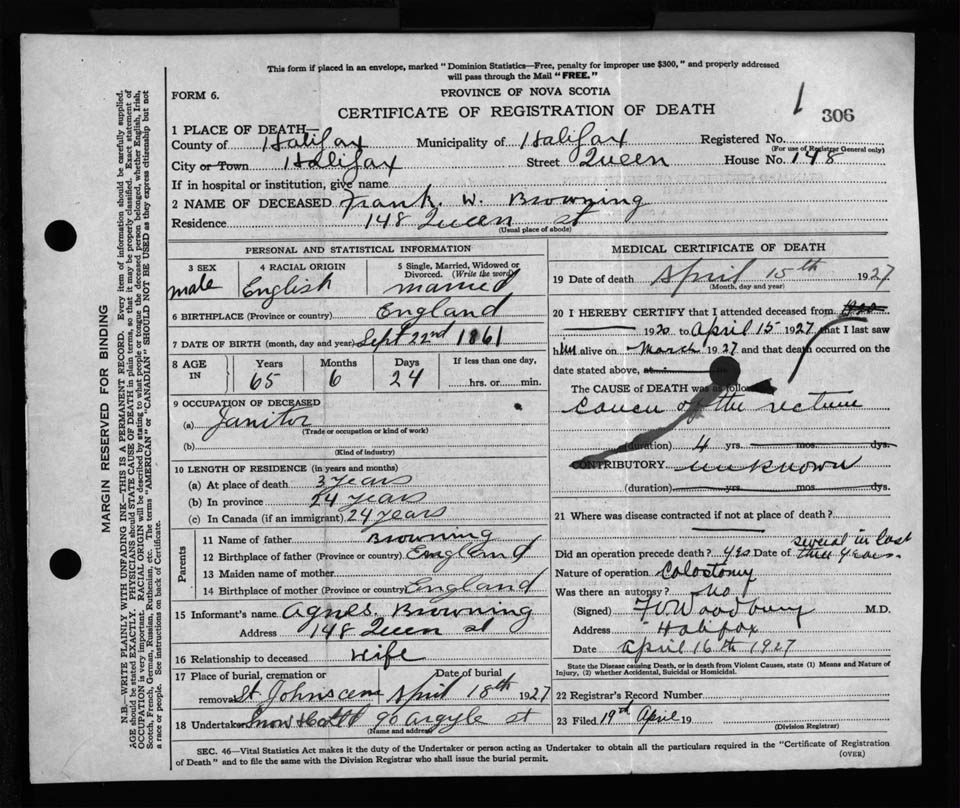 This form if placed in an envelope, marked "Dominion Statistics—Free, penalty for improper use $300," and properly addressed
will pass through the Mail "FREE."
FORM 6.
PROVINCE OF NOVA SCOTIA
CERTIFICATE OF REGISTRATION OF DEATH
1 306
1 PLACE OF DEATH—
County of Halifax Municipality of Halifax Registered No.
(For use of Registrar General only)
City or Town Halifax Street Queen House No. 148
If in hospital or institution, give name
2 NAME OF DECEASED Frank. W. Browning
Residence 148 Queen st
(Usual place of abode)
PERSONAL AND STATISTICAL INFORMATION
3 SEX 4 RACIAL ORIGIN 5 Single, Married, Widowed or Divorced. (Write the word)
male English married
6 BIRTHPLACE (Province or country) England
7 DATE OF BIRTH (month, day and year) Sept 22nd 1861
8 AGE IN Years Months Days If less than one day,
65 6 24 hrs. or min.
9 OCCUPATION OF DECEASED
(a) Janitor
(Trade or occupation or kind of work)
(b)
(Kind of industry)
10 LENGTH OF RESIDENCE (in years and months)
(a) At place of death 3 years
(b) In province 24 years
(c) In Canada (if an immigrant) 24 years
Parents
11 Name of father Browning
12 Birthplace of father (Province or country) England
13 Maiden name of mother
14 Birthplace of mother (Province or country) England
15 Informant's name Agnes Browning
Address 148 Queen st
16 Relationship to deceased Wife
17 Place of burial, cremation or removal Date of burial
St. Johns cem April 18th 1927
18 Undertaker Snow & Co Ltd 90 argyle st
(Name and address)
MEDICAL CERTIFICATE OF DEATH
19 Date of death April 15th 1927
(Month, day and year)
20 I HEREBY CERTIFY that I attended deceased from
1920 to April 15 1927, that I last saw
him alive on March 1927 and that death occurred on the
date stated above, at
The CAUSE of DEATH was as follows
Cancer of the rectum
(duration) 4 yrs. mos. dys.
CONTRIBUTORY unknown
(duration) yrs. mos. dys.
21 Where was disease contracted if not at place of death?
Did an operation precede death? yes Date of several in last three years
Nature of operation Colostomy
Was there an autopsy? No
(Signed) F V Woodbury M.D.
Address Halifax
Date April 16th 1927
State the Disease causing Death, or in death from Violent Causes, state (1) Means and Nature of
Injury, (2) whether Accidental, Suicidal or Homicidal.
22 Registrar's Record Number
23 Filed 19th April 19
(Division Registrar)
SEC. 46—Vital Statistics Act makes it the duty of the Undertaker or person acting as Undertaker to obtain all the particulars required in the "Certificate of Registration
of Death" and to file the same with the Division Registrar who shall issue the burial permit.
(OVER)
MARGIN RESERVED FOR BINDING
N.B.—WRITE PLAINLY WITH UNFADING INK—THIS IS A PERMANENT RECORD. Every item of information should be carefully supplied.
AGE should be stated EXACTLY. PHYSICIANS should STATE CAUSE OF DEATH in plain terms, so that it may be properly classified. Exact statement of
OCCUPATION is very important. RACIAL ORIGIN will be described by stating to what people or tongue the deceased person belonged, whether English, Irish,
Scotch, French, German, Russian, Ruthenian, etc. The terms "AMERICAN" or "CANADIAN" SHOULD NOT BE USED as they express citizenship but not
a race or people. See instructions on back of Certificate.